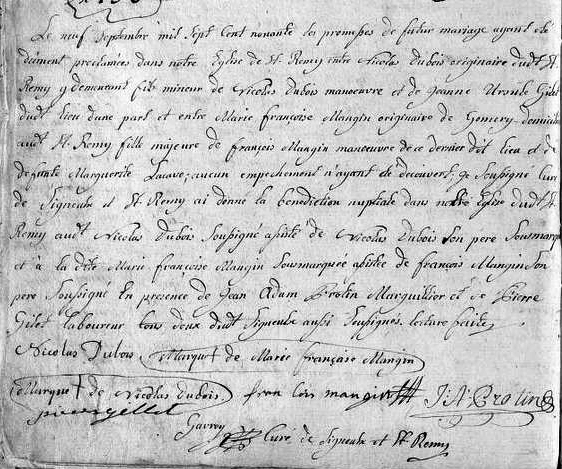 Le neuf septembre mil sept cent nonante les promesses de futur mariage ayant eté
dûment proclamées dans notre Eglise de St Remy entre Nicolas Dubois originaire dudt St
Remy y demeurant fils mineur de Nicolas Dubois manoeuvre et de Jeanne Ursule Gilet
dudt lieu dune part et entre Marie françoise Mangin originaire de Gomery domiciliée
audt St Remy fille majeure de françois Mangin manoeuvre de ce dernier dit lieu et de
defunte Marguerite aucun empechement n'ayant eté decouvert, je soussigné Curé
de Signeulx et St Remy ai donné la benediction nuptiale dans notre Eglise dudt St
Remy audt Nicolas Dubois soussigné assisté de Nicolas Dubois son pere sousmarqué
et à la dite Marie françoise Mangin sousmarquée assistée de françois Mangin son
pere soussigné En presence de Jean Adam Protin Marguillier et de Pierre
Gilet laboureur tous deux dudt Signeulx aussi soussignés lecture faite
Nicolas Dubois Marque † de Marie françoise Mangin
Marque † de Nicolas Dubois fran cois mangin J: A: Protin
pierre gillet
Curé de Signeulx et St Remy